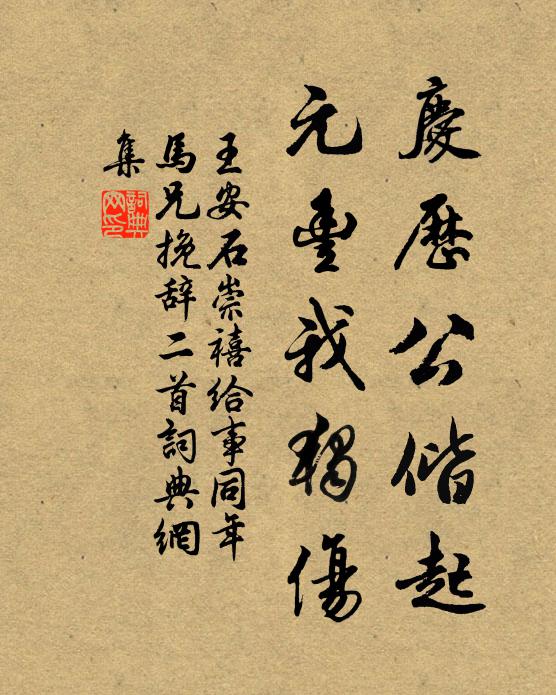 慶歷公偕起
元豊我獨傷
王安石崇禧給事同年
馬兄挽辞二首詞典網
集
詞典
网印